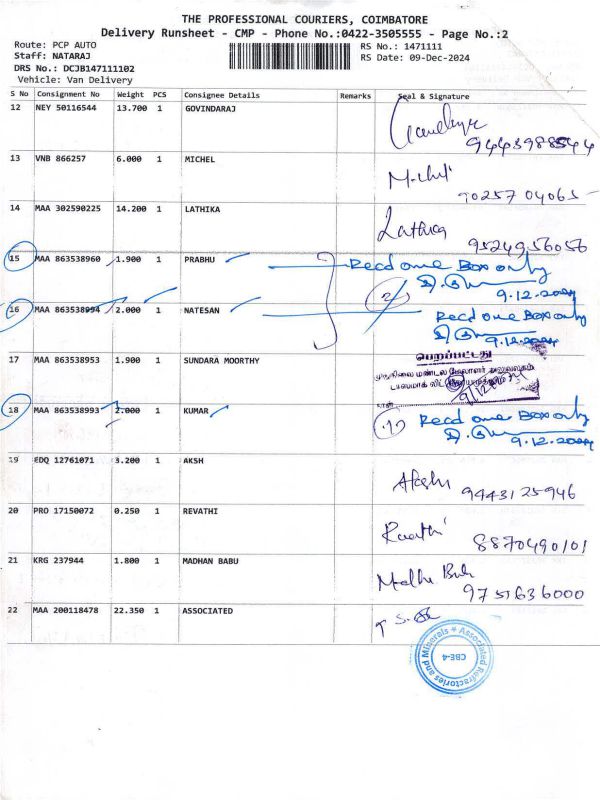 THE PROFESSIONAL COURIERS, COIMBATORE
Delivery Runsheet - CMP - Phone No.:0422-3505555 - Page No.:2
Route: PCP AUTO
Staff: NATARAJ
DRS No.: DCJB147111102
Vehicle: Van Delivery
RS No.: 1471111
RS Date: 09-Dec-2024
S No Consignment No Weight PCS Consignee Details Remarks Seal & Signature
12 NEY 50116544 13.700 1 GOVINDARAJ
9443988544
13 VNB 866257 6.000 1 MICHEL
9025704065
14 MAA 302590225 14.200 1 LATHIKA Lathika
9524956056
15 MAA 863538960 1.900 1 PRABHU Recd one Box only
9.12.2024
16 MAA 863538994 2.000 1 NATESAN 2 Recd one Box only
9.12.2024
17 MAA 863538953 1.900 1 SUNDARA MOORTHY பெறப்பட்டது
18 MAA 863538993 2.000 1 KUMAR Recd one Box only
9.12.2024
19 EDQ 12761071 3.200 1 AKSH
9443125946
20 PRO 17150072 0.250 1 REVATHI
8870490101
21 KRG 237944 1.800 1 MADHAN BABU
9751636000
22 MAA 200118478 22.350 1 ASSOCIATED
Associated Refractories and Minerals
CBE-4